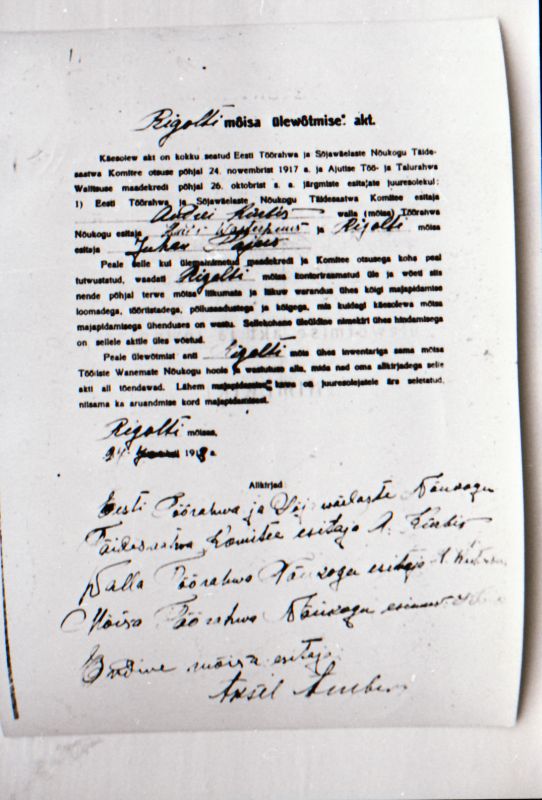 Rigolti mõisa ülewõtmise akt.
Käesolew akt on kokku seatud Eesti Töörahwa ja Sõjawäelaste Nõukogu Täide-
saatwa Komitee otsuse põhjal 24. nowembrist 1917 a. ja Ajutise Töö- ja Talurahwa
Walitsuse maadekredi põhjal 26. oktobrist a. a. järgmiste esitajate juuresolekul:
1) Eesti Töörahwa ja Sõjawäelaste Nõukogu Täidesaatwa Komitee esitaja
Andrei Kürbis walla (mõisa) Töörahwa
Nõukogu esitaja ja Rigolti mõisa
esitaja Juhan
Peale selle kui ülemalnimetud maadekredi ja Komitee otsusega koha peal
tutwustatud, waadati Rigolti mõisa kontoriraamatud üle ja wõeti siis
nende põhjal terwe mõisa liikumata ja liikuw warandus ühes kõigi majapidamise
loomadega, tööriistadega, põllusaadustega ja kõigega, mis kuidagi käesolewa mõisa
majapidamisega ühenduses on wastu. Sellekohane üleüldine nimekiri ühes hindamisega
on sellele aktile üles wõetud.
Peale ülewõtmist anti Rigolti mõis ühes inwentariga sama mõisa
Tööliste Wanemate Nõukogu hoole ja wastutuse alla, mida nad oma allkirjadega selle
akti all tõendawad. Lähem majapidamise kawa on juuresolejatele ära seletatud,
niisama ka aruandmise kord majapidamisest.
Rigolti mõisas,
24 1918 a.
Allkirjad
Eesti Töörahwa ja Sõjawäelaste Nõukogu
Täidesaatwa Komitee esitaja A. Kürbis
Walla Töörahwa Nõukogu esitaja
Mõisa Töörahwa Nõukogu esimees
Endine mõisa esitaja
Aksel